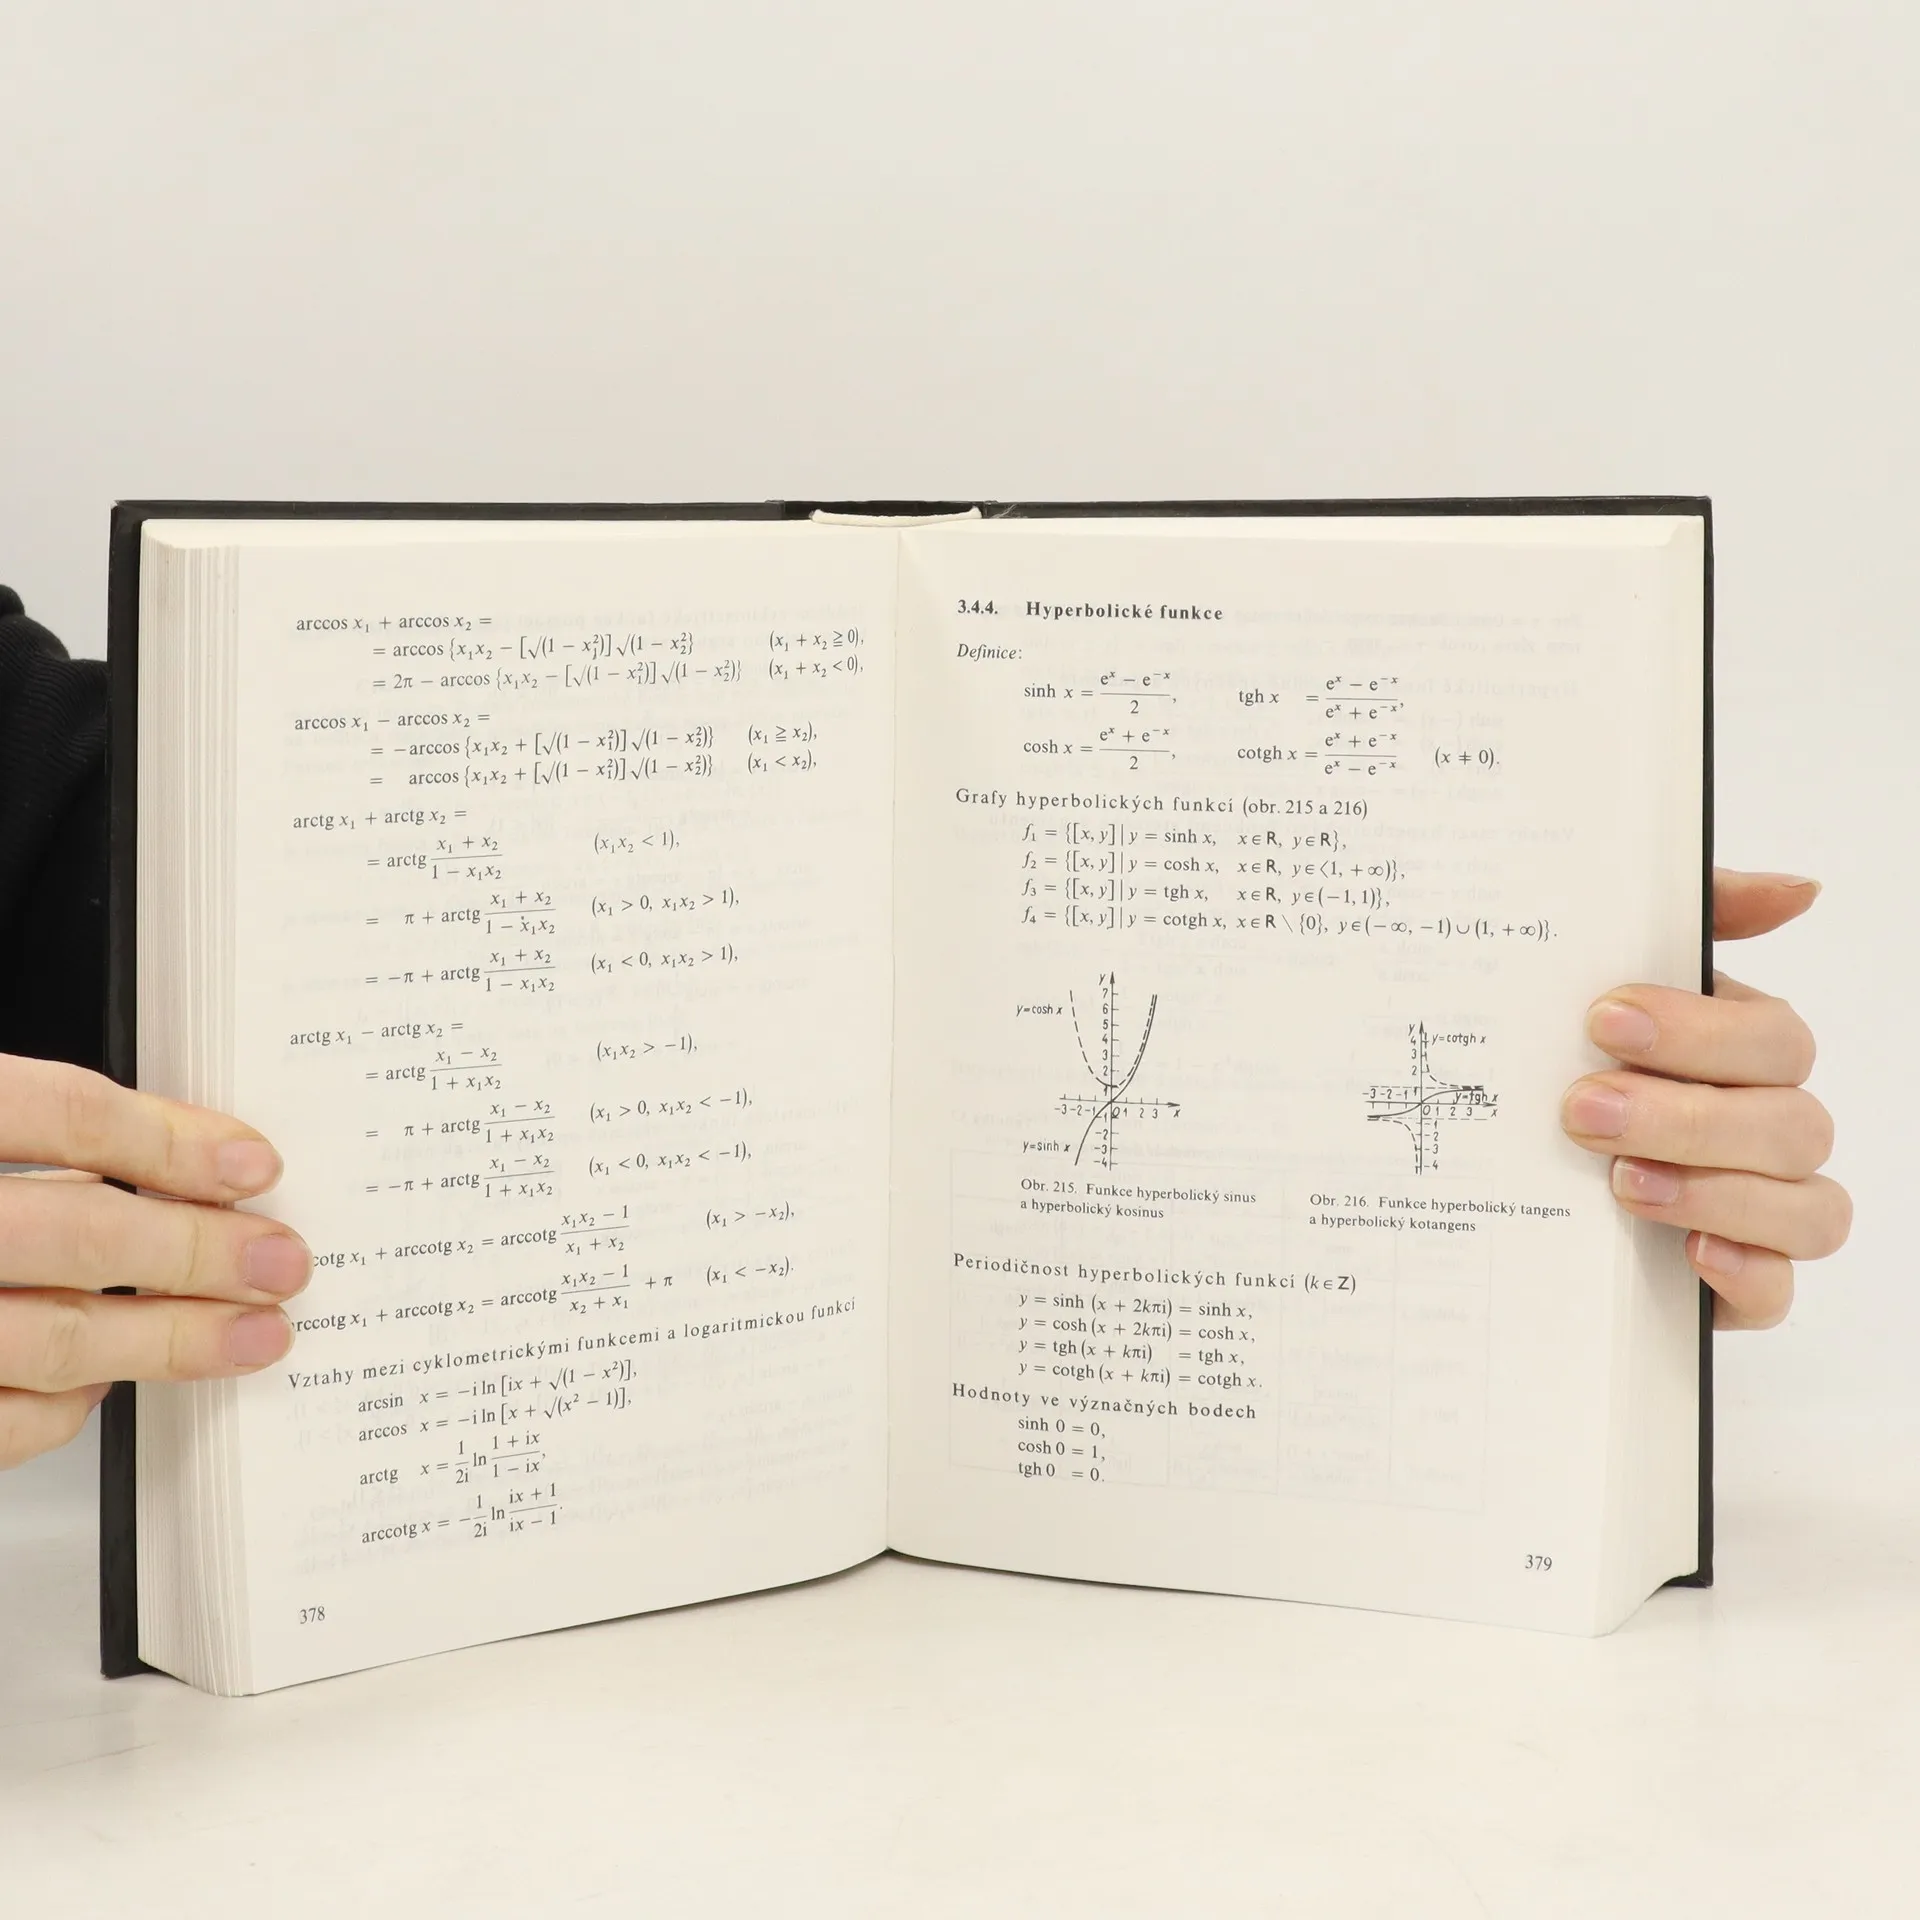 arccos x₁ + arccos x₂ =
= arccos {x₁x₂ − [√(1 − x₁²)] √(1 − x₂²)} (x₁ + x₂ ≧ 0),
= 2π − arccos {x₁x₂ − [√(1 − x₁²)] √(1 − x₂²)} (x₁ + x₂ < 0),
arccos x₁ − arccos x₂ =
= −arccos {x₁x₂ + [√(1 − x₁²)] √(1 − x₂²)} (x₁ ≧ x₂),
= arccos {x₁x₂ + [√(1 − x₁²)] √(1 − x₂²)} (x₁ < x₂),
arctg x₁ + arctg x₂ =
= arctg (x₁ + x₂)/(1 − x₁x₂) (x₁x₂ < 1),
= π + arctg (x₁ + x₂)/(1 − x₁x₂) (x₁ > 0, x₁x₂ > 1),
= −π + arctg (x₁ + x₂)/(1 − x₁x₂) (x₁ < 0, x₁x₂ > 1),
arctg x₁ − arctg x₂ =
= arctg (x₁ − x₂)/(1 + x₁x₂) (x₁x₂ > −1),
= π + arctg (x₁ − x₂)/(1 + x₁x₂) (x₁ > 0, x₁x₂ < −1),
= −π + arctg (x₁ − x₂)/(1 + x₁x₂) (x₁ < 0, x₁x₂ < −1),
cotg x₁ + arccotg x₂ = arccotg (x₁x₂ − 1)/(x₁ + x₂) (x₁ > −x₂),
rccotg x₁ + arccotg x₂ = arccotg (x₁x₂ − 1)/(x₂ + x₁) + π (x₁ < −x₂).
Vztahy mezi cyklometrickými funkcemi a logaritmickou funkcí
arcsin x = −i ln [ix + √(1 − x²)],
arccos x = −i ln [x + √(x² − 1)],
arctg x = 1/2i ln (1 + ix)/(1 − ix),
arccotg x = −1/2i ln (ix + 1)/(ix − 1).
378
3.4.4. Hyperbolické funkce
Definice:
sinh x = (eˣ − e⁻ˣ)/2, tgh x = (eˣ − e⁻ˣ)/(eˣ + e⁻ˣ),
cosh x = (eˣ + e⁻ˣ)/2, cotgh x = (eˣ + e⁻ˣ)/(eˣ − e⁻ˣ) (x ≠ 0).
Grafy hyperbolických funkcí (obr. 215 a 216)
f₁ = {[x, y] | y = sinh x, x ∈ R, y ∈ R},
f₂ = {[x, y] | y = cosh x, x ∈ R, y ∈ ⟨1, +∞)},
f₃ = {[x, y] | y = tgh x, x ∈ R, y ∈ (−1, 1)},
f₄ = {[x, y] | y = cotgh x, x ∈ R \ {0}, y ∈ (−∞, −1) ∪ (1, +∞)}.
y
7
y=cosh x 6
5
4
3
2
1
-3 -2 -1 0 1 2 3 x
-1
-2
y=sinh x -3
-4
Obr. 215. Funkce hyperbolický sinus
a hyperbolický kosinus
y
4 y=cotgh x
3
2
-3 -2 -1 1 y=tgh x
0 1 2 3 x
-1
-2
-3
-4
Obr. 216. Funkce hyperbolický tangens
a hyperbolický kotangens
Periodičnost hyperbolických funkcí (k ∈ Z)
y = sinh (x + 2kπi) = sinh x,
y = cosh (x + 2kπi) = cosh x,
y = tgh (x + kπi) = tgh x,
y = cotgh (x + kπi) = cotgh x.
Hodnoty ve význačných bodech
sinh 0 = 0,
cosh 0 = 1,
tgh 0 = 0.
379